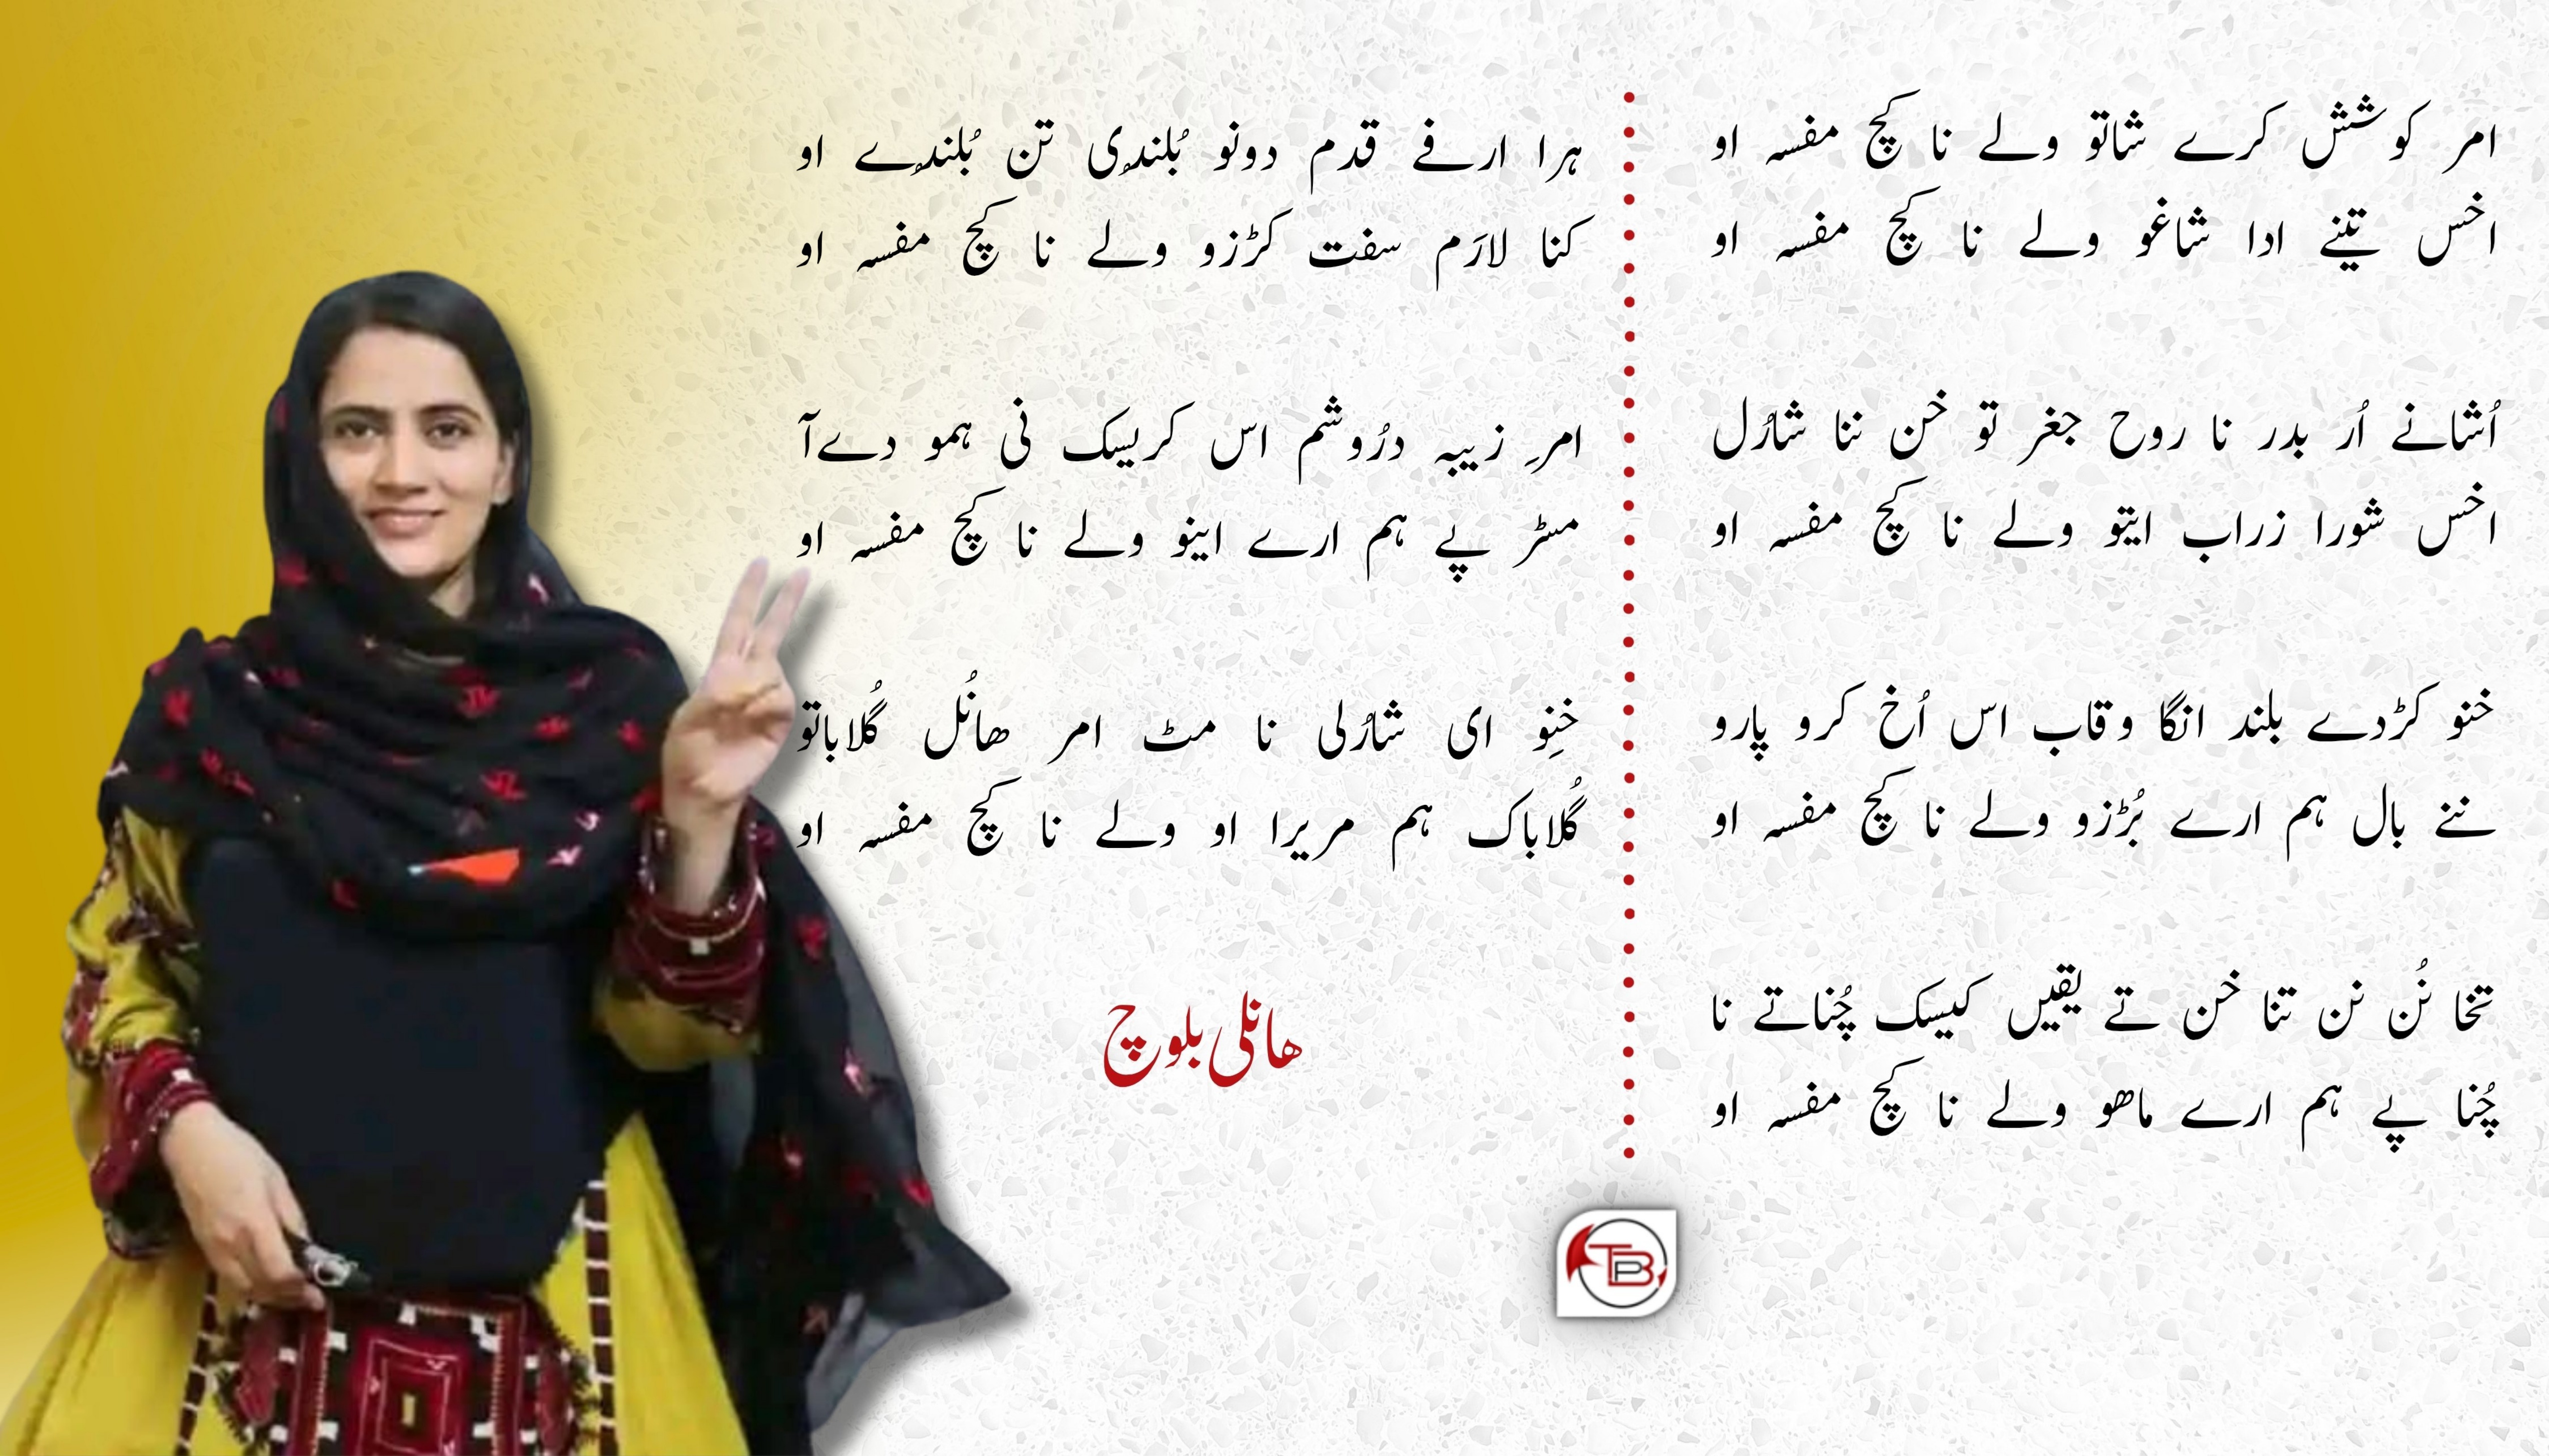 امر کوشش کرے شاتو ولے نا کچ مفسہ او
اخس تینے ادا شاغو ولے نا کچ مفسہ او
اُشانے اُر بدر نا روح جغر تو خن ننا شارُل
اخس شورا زراب ایتو ولے نا کچ مفسہ او
خنو کڑدے بلند انگا وقاب اس اُخ کرو پارو
ننے بال ہم ارے بُڑزو ولے نا کچ مفسہ او
تخا نُن نن تنا خن تے یقیں کیسک چُناتے نا
چُنا پے ہم ارے ماھو ولے نا کچ مفسہ او
ہرا ارفے قدم دونو بُلندِی تن بُلندِے او
کنا لارَم سفت کڑزو ولے نا کچ مفسہ او
امرِ زیبہ درُوشم اس کریسک نی ہمو دےآ
مٹر پے ہم ارے اینو ولے نا کچ مفسہ او
خنِو ای شارُلی نا مٹ امر ھانُل گُلاباتو
گُلاباک ہم مریرا او ولے نا کچ مفسہ او
ھانلی بلوچ
TBP